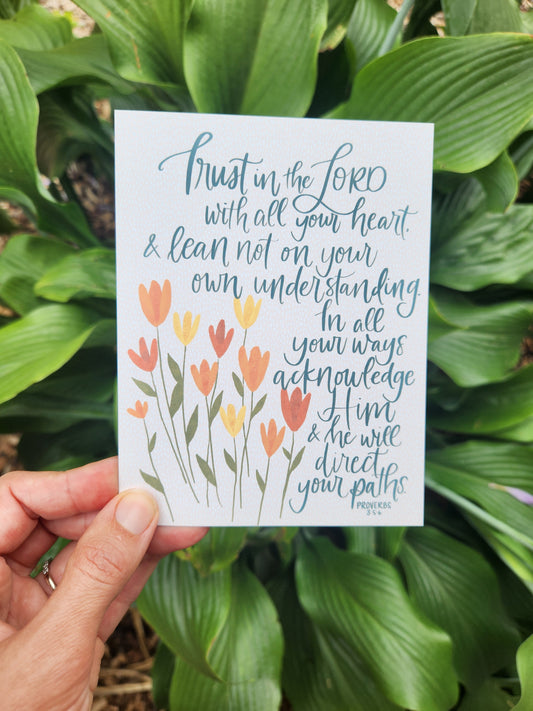 Trust in the LORD
with all your heart,
& lean not on your
own understanding.
In all
your ways
acknowledge
Him
& he will
direct
your paths.
PROVERBS
3:5-6